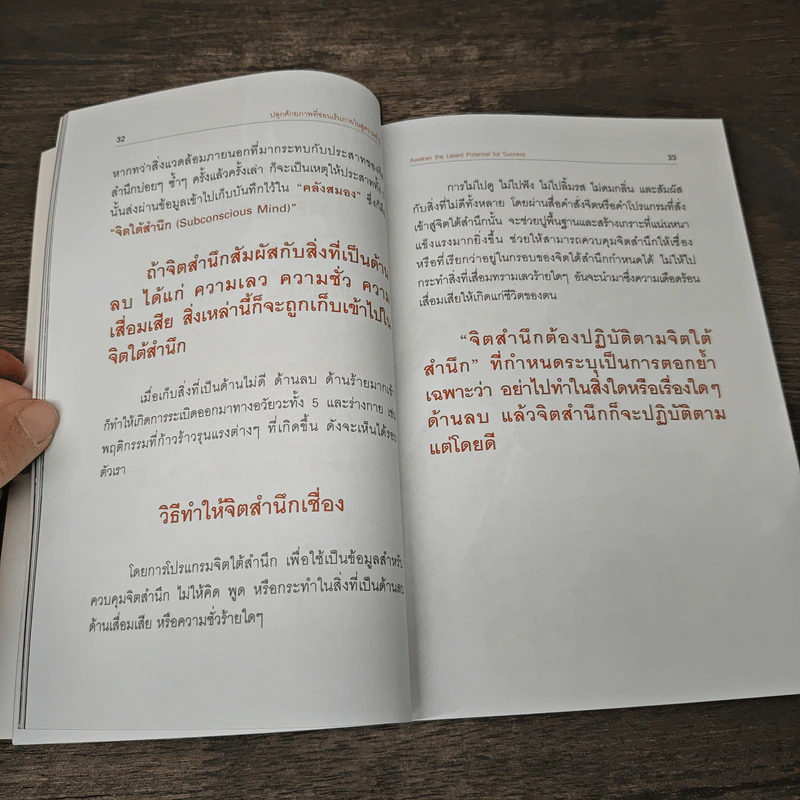 32
ปลุกศักยภาพที่ซ่อนเร้นภายในสู่ความสำเร็จ
หากทว่าสิ่งแวดล้อมภายนอกที่มากระทบกับประสาทของจิต
สำนึกบ่อยๆ ซ้ำๆ ครั้งแล้วครั้งเล่า ก็จะเป็นเหตุให้ประสาททั้ง
นั้นส่งผ่านข้อมูลเข้าไปเก็บบันทึกไว้ใน “คลังสมอง” ซึ่งก็คือ
“จิตใต้สำนึก (Subconscious Mind)”
ถ้าจิตสำนึกสัมผัสกับสิ่งที่เป็นด้าน
ลบ ได้แก่ ความเลว ความชั่ว ความ
เสื่อมเสีย สิ่งเหล่านี้ก็จะถูกเก็บเข้าไปใน
จิตใต้สำนึก
เมื่อเก็บสิ่งที่เป็นด้านไม่ดี ด้านลบ ด้านร้ายมากเข้า
ก็ทำให้เกิดการระเบิดออกมาทางอวัยวะทั้ง 5 และร่างกาย เช่น
พฤติกรรมที่ก้าวร้าวรุนแรงต่างๆ ที่เกิดขึ้น ดังจะเห็นได้รอบ
ตัวเรา
วิธีทำให้จิตสำนึกเชื่อง
โดยการโปรแกรมจิตใต้สำนึก เพื่อใช้เป็นข้อมูลสำหรับ
ควบคุมจิตสำนึก ไม่ให้คิด พูด หรือกระทำในสิ่งที่เป็นด้านลบ
ด้านเสื่อมเสีย หรือความชั่วร้ายใดๆ
Awaken the Latent Potential for Success
33
การไม่ไปดู ไม่ไปฟัง ไม่ไปลิ้มรส ไม่ดมกลิ่น และสัมผัส
กับสิ่งที่ไม่ดีทั้งหลาย โดยผ่านสื่อคำสั่งจิตหรือคำโปรแกรมที่สั่ง
เข้าสู่จิตใต้สำนึกนั้น จะช่วยปูพื้นฐานและสร้างเกราะที่แน่นหนา
แข็งแรงมากยิ่งขึ้น ช่วยให้สามารถควบคุมจิตสำนึกให้เชื่อง
หรือที่เรียกว่าอยู่ในกรอบของจิตใต้สำนึกกำหนดได้ ไม่ให้ไป
กระทำสิ่งที่เสื่อมทรามเลวร้ายใดๆ อันจะนำมาซึ่งความเดือดร้อน
เสื่อมเสียให้เกิดแก่ชีวิตของตน
“จิตสำนึกต้องปฏิบัติตามจิตใต้
สำนึก” ที่กำหนดระบุเป็นการตอกย้ำ
เฉพาะว่า อย่าไปทำในสิ่งใดหรือเรื่องใดๆ
ด้านลบ แล้วจิตสำนึกก็จะปฏิบัติตาม
แต่โดยดี